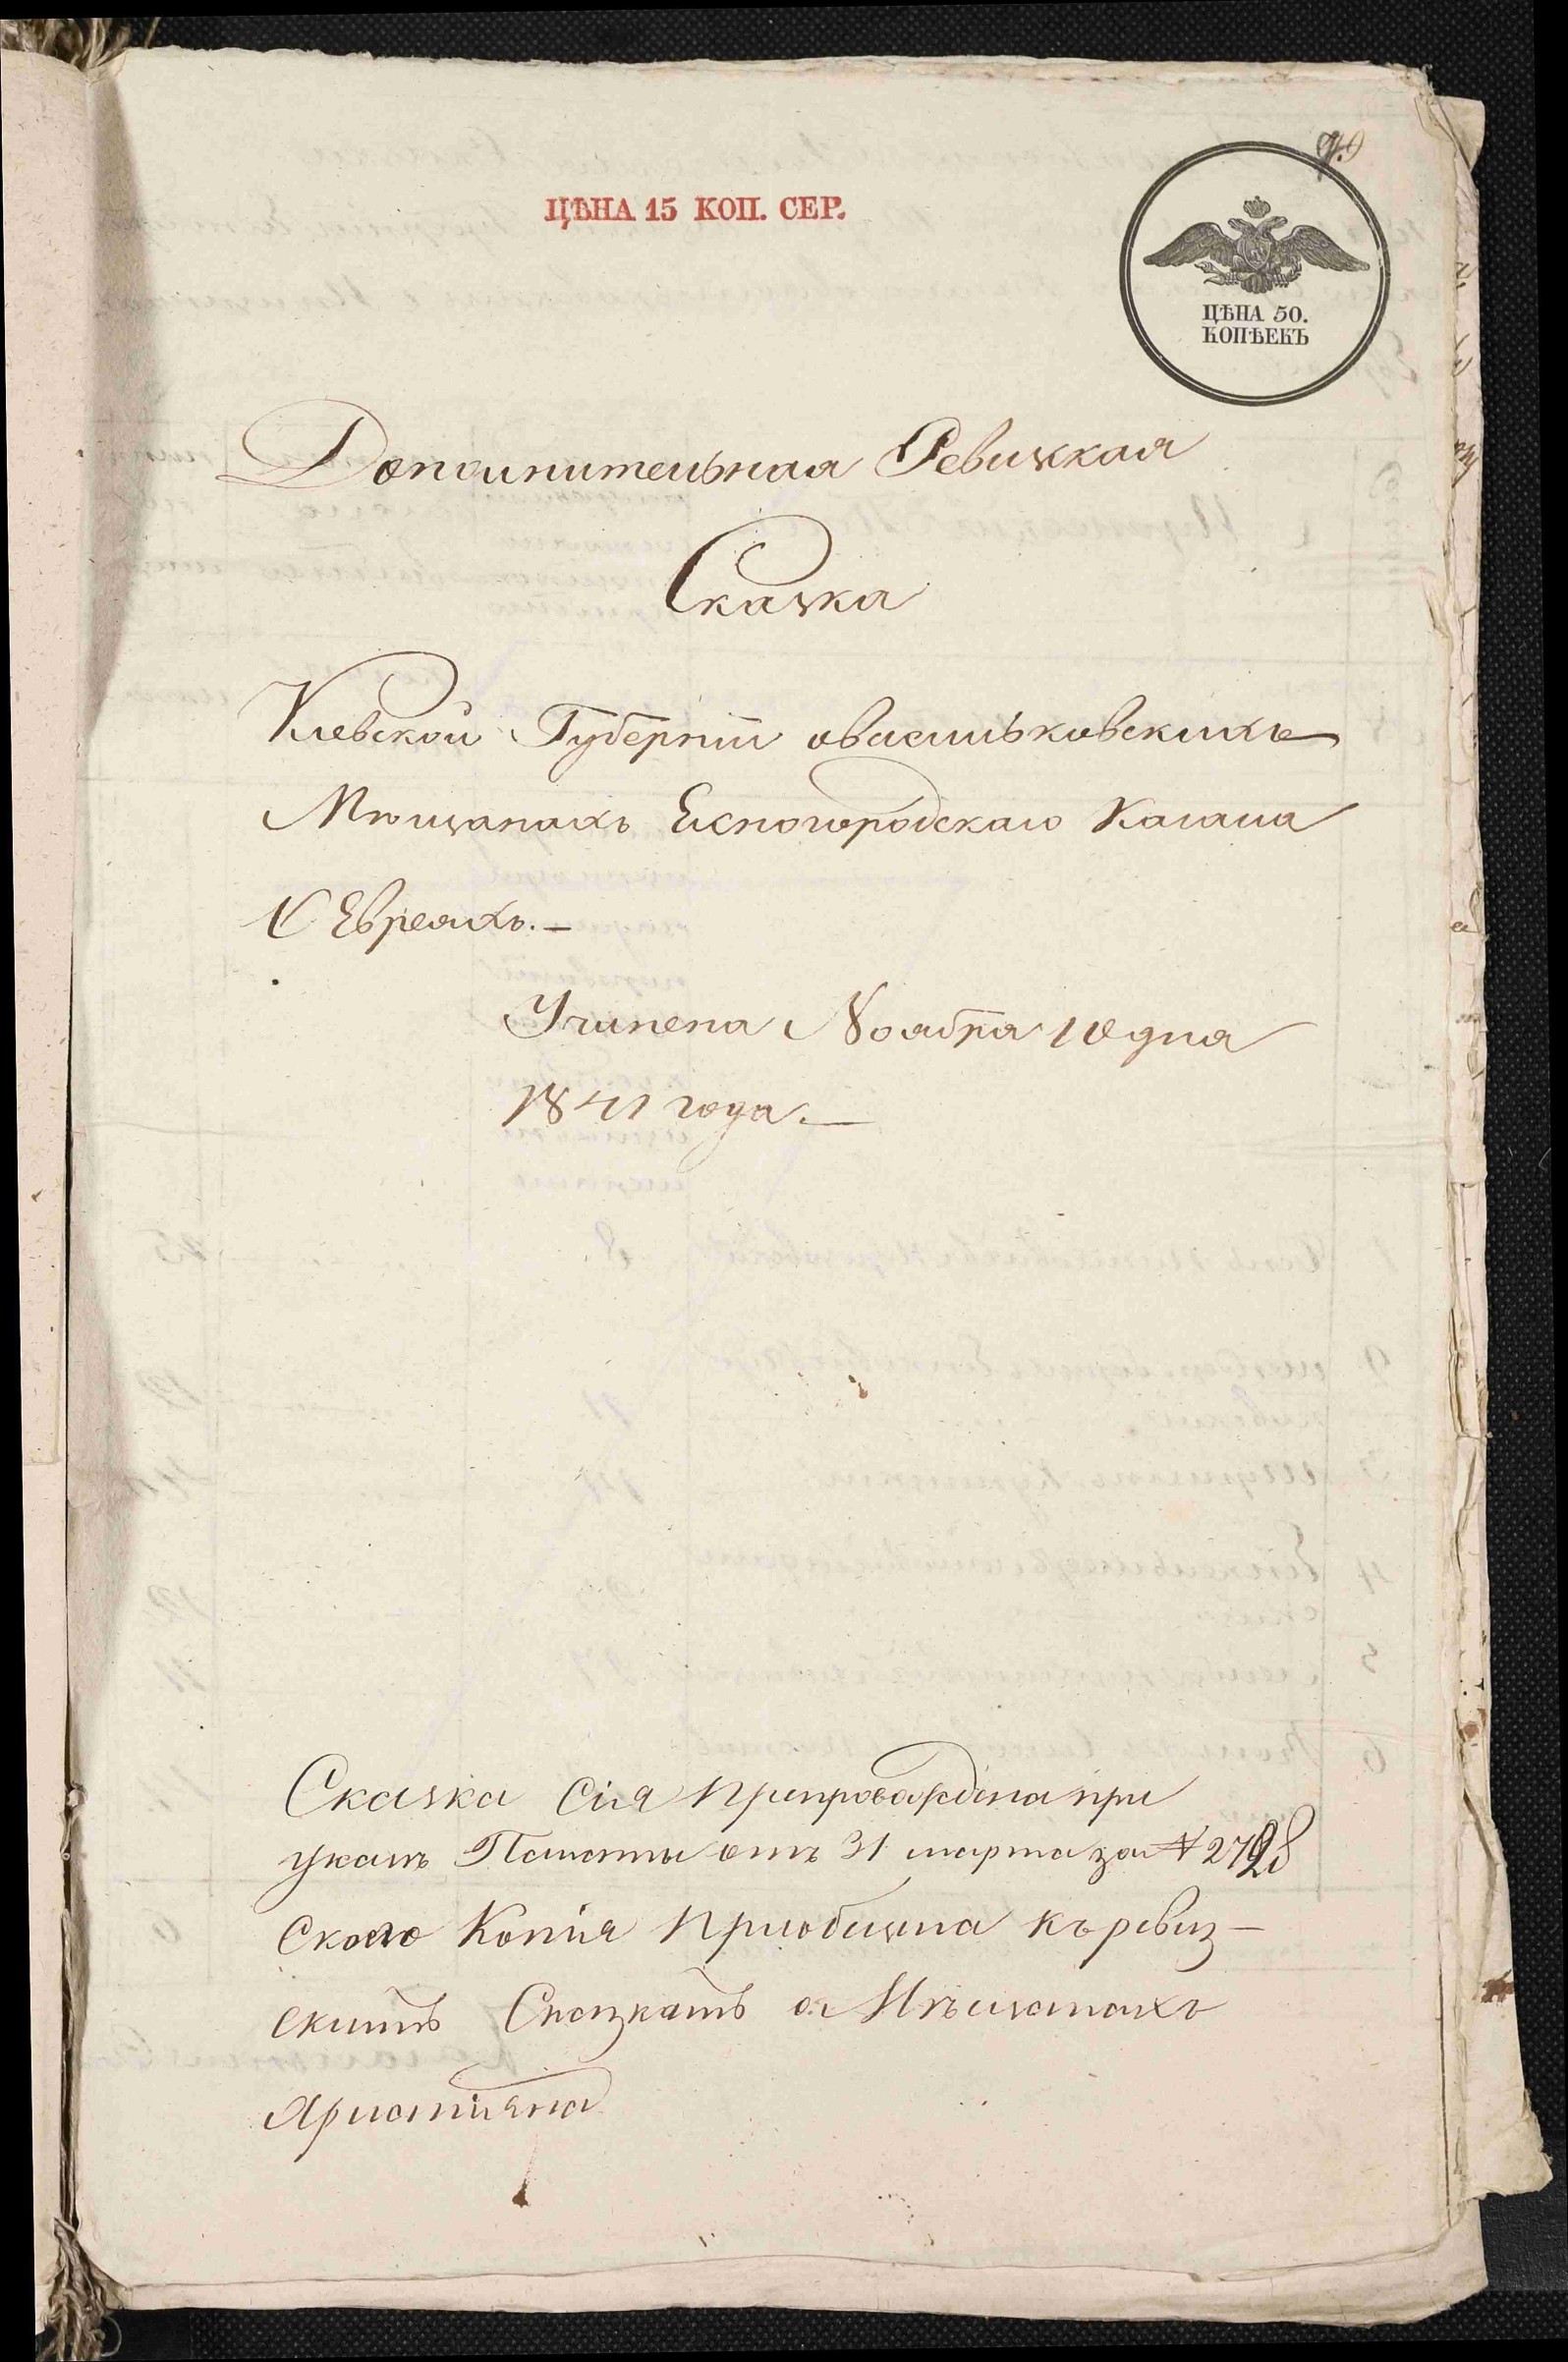 ЦѢНА 15 КОП. СЕР.
ЦѢНА 50.
КОПѢЕКЪ
Дополнительная Ревизкая
Сказка
Киевской Губерніи о васильковскихъ
Мѣщанахъ Ясногородскаго Кагала
Евреяхъ.—
Учинена Ноября 10 дня
1841 года.—
Сказка сія препровождена при
указѣ Палаты отъ 31 марта за №
с коего Копія приобщена къ ревиз-
скимъ Сказкамъ о Мѣщанахъ